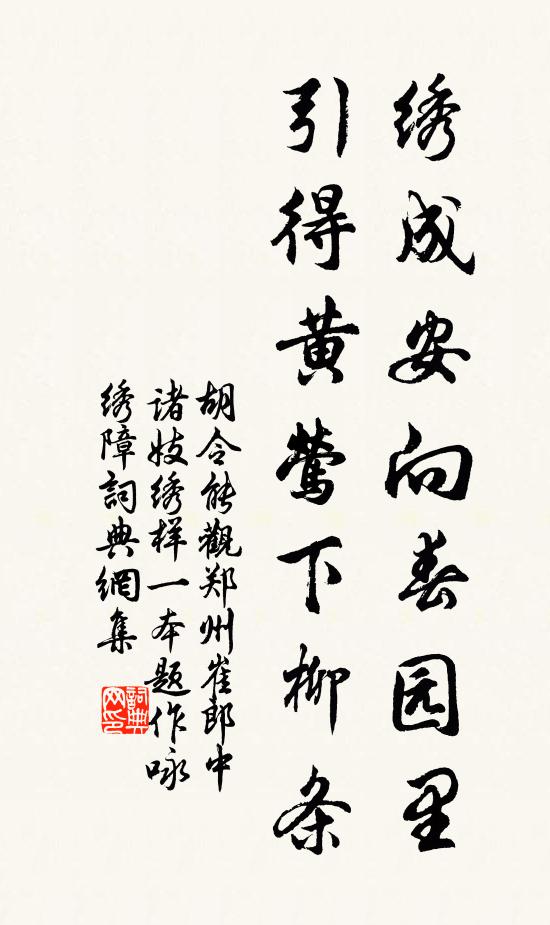 绣成安向春园里
引得黄莺下柳条
胡令能觀郑州崔郎中
诸妓绣样一本题作咏
绣障詞典網集
詞典网印